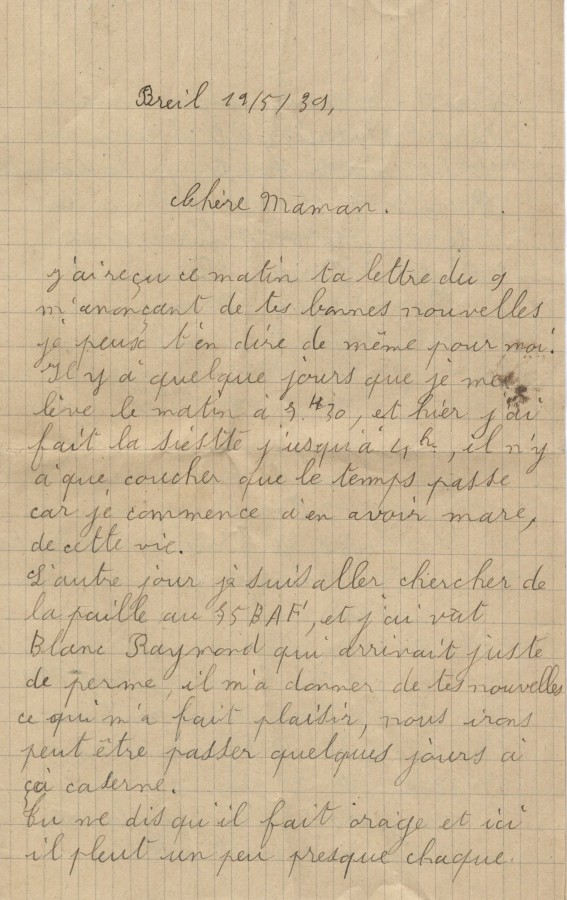 Breil 19/5/39,
Chère Maman.
j'ai reçu ce matin ta lettre du 9
m'anonçant de tes bonnes nouvelles
je peux t'en dire de même pour moi.
Il y a quelque jours que je me
lève le matin à 9.H30, et hier j'ai
fait la siestte j'usqu'à 4h, il n'y
à que coucher que le temps passe
car je commence d'en avoir mare,
de cette vie.
L'autre jour je suis aller chercher de
la paille au 95 BAF, et j'ai vut
Blanc Raymond qui arrivait juste
de perme, il m'a donner de tes nouvelles
ce qui m'a fait plaisir, nous irons
peut être passer quelques jours à
çà caserne.
Tu me dis qu'il fait orage et ici
il pleut un peu presque chaque